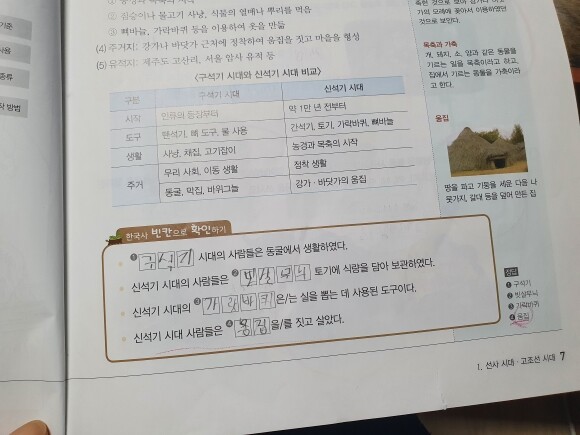 ② 짐승이나 물고기 사냥, 식물의 열매나 뿌리를 먹음
③ 뼈바늘, 가락바퀴 등을 이용하여 옷을 만듦
(4) 주거지: 강가나 바닷가 근처에 정착하여 움집을 짓고 마을을 형성
(5) 유적지: 제주도 고산리, 서울 암사 유적 등
<구석기 시대와 신석기 시대 비교>
구분 구석기 시대 신석기 시대
시작 인류의 등장부터 약 1만 년 전부터
도구 뗀석기, 뼈 도구, 불 사용 간석기, 토기, 가락바퀴, 뼈바늘
생활 사냥, 채집, 고기잡이 농경과 목축의 시작
주거 무리 사회, 이동 생활 정착 생활
동굴, 막집, 바위그늘 강가·바닷가의 움집
한국사 빈칸으로 확인하기
① 구석기 시대의 사람들은 동굴에서 생활하였다.
신석기 시대의 사람들은 ② 빗살무늬 토기에 식량을 담아 보관하였다.
신석기 시대의 ③ 가락바퀴 은/는 실을 뽑는 데 사용된 도구이다.
신석기 시대 사람들은 ④ 움집 을/를 짓고 살았다.
가의 모래에 꽂아서 이용하였던
것으로 보인다.
목축과 가축
개, 돼지, 소, 양과 같은 동물을
기르는 일을 목축이라고 하고,
집에서 기르는 동물을 가축이라
고 한다.
움집
땅을 파고 기둥을 세운 다음 나
뭇가지, 갈대 등을 덮어 만든 집
정답
① 구석기
② 빗살무늬
③ 가락바퀴
④ 움집
Ⅰ. 선사 시대·고조선 시대 7
기준
사용
종류
작 방법